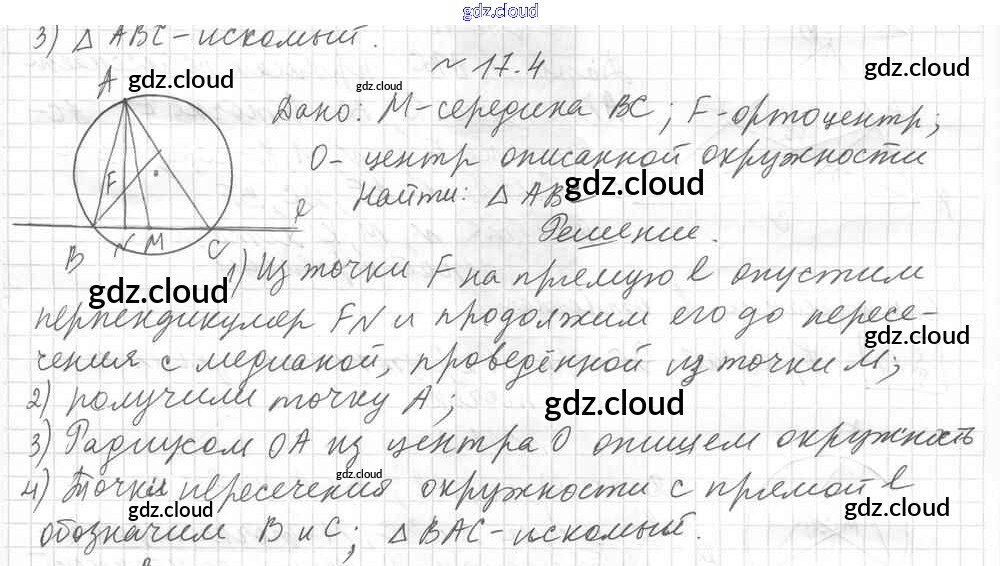 gdz.cloud
3) △ ABC - искомый.
~ 17.4
gdz.cloud
gdz.cloud
gdz.cloud
A
Дано: M - середина BC; F - ортоцентр;
gdz.cloud
O - центр описанной окружности
F
Найти: △ ABC
gdz.cloud
ℓ
Решение.
B N M C
1) Из точки F на прямую ℓ опустим
gdz.cloud
перпендикуляр FN и продолжим его до пересе-
gdz.cloud
чения с медианой, проведённой из точки M;
2) получили точку A;
gdz.cloud
3) Радиусом OA из центра O опишем окружность
gdz.cloud
4) Точки пересечения окружности с прямой ℓ
gdz.cloud
gdz.cloud
обозначим B и C; △ BAC - искомый.